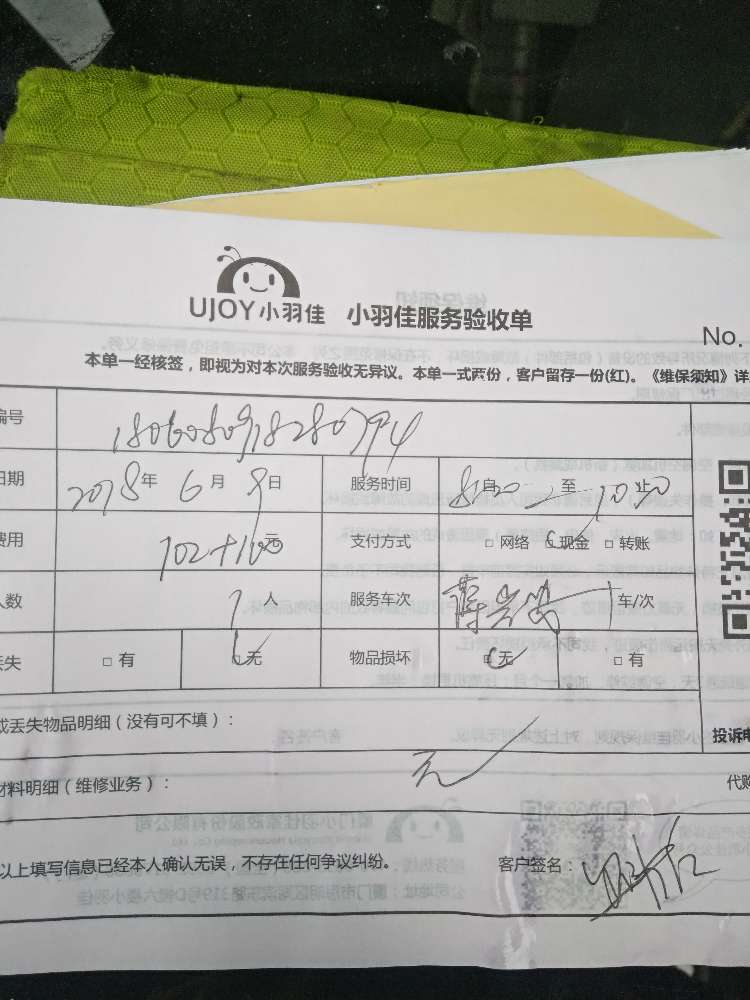 UJOY小羽佳 小羽佳服务验收单
No.
本单一经核签，即视为对本次服务验收无异议。本单一式两份，客户留存一份(红)。《维保须知》详
编号 1806080918280794
日期 2018年 6月 9日 服务时间 8自20 至 10止20
费用 102+10元 支付方式 □ 网络 □ 现金 □ 转账
人数 1 人 服务车次 车/次
丢失 □ 有 □ 无 物品损坏 □ 无 □ 有
或丢失物品明细（没有可不填）：
投诉电
材料明细（维修业务）： 无
代购
以上填写信息已经本人确认无误，不存在任何争议纠纷。 客户签名：